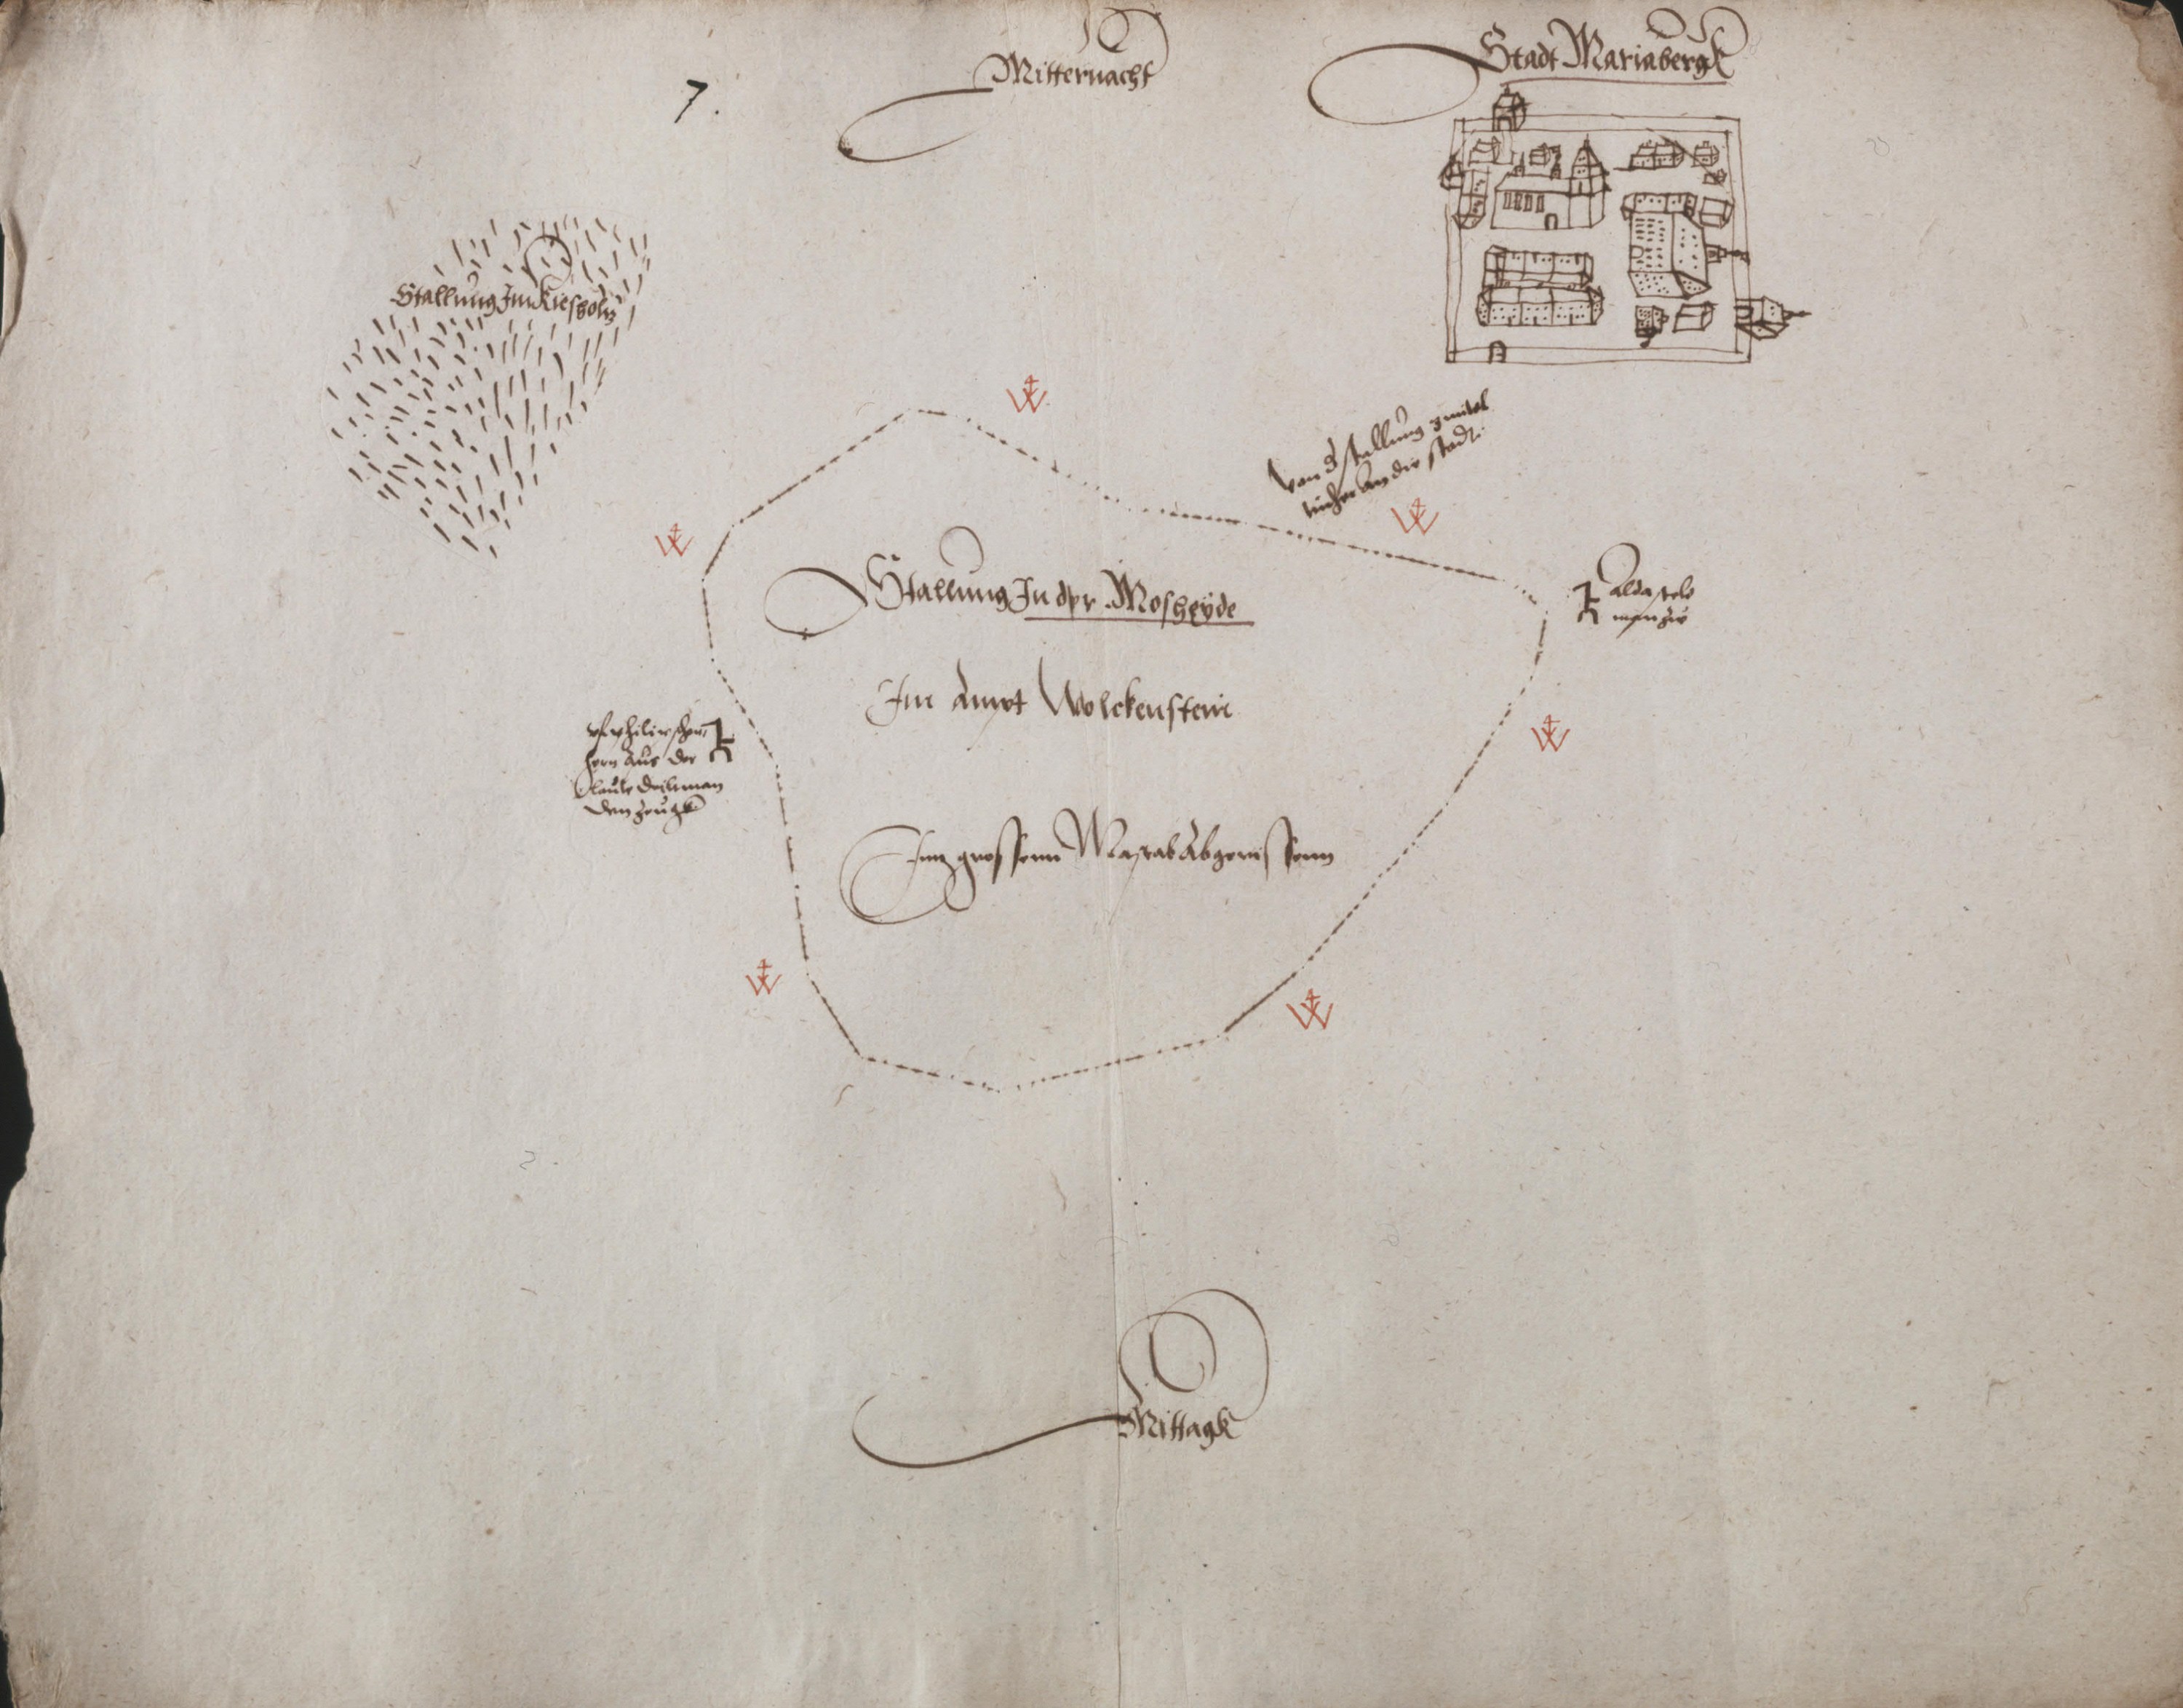 7.
Mitternacht
Stadt Mariabergk
Stallung Im Kiesholtz
Von d stallung
an die stadt.
Stallung In der Mosheyde
Im Ampt Wolckenstein
Im grossenn Masstab Abgerissenn
alda
aus der
den zeugk
Mittagk